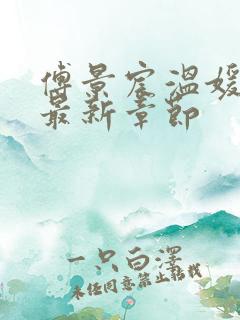 傅景宸温媛
最新章节
一只白泽
未经同意禁止转载